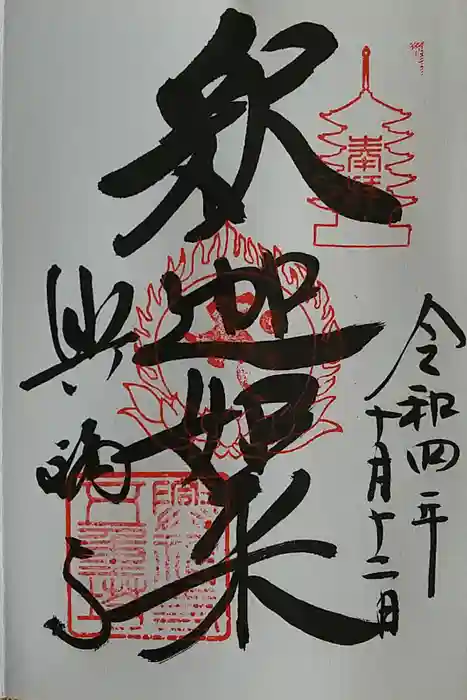 奉拝
令和四年
十月十二日
釈迦如来
興福寺